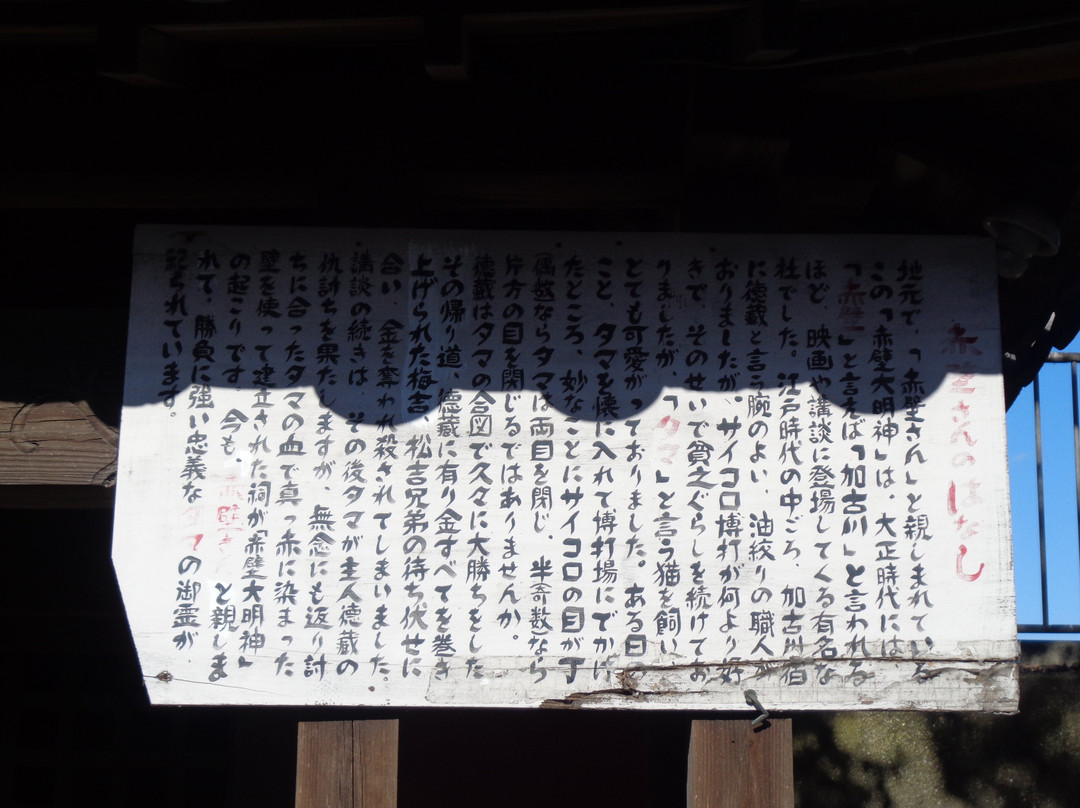 赤壁さんのはなし
地元で、「赤壁さん」と親しまれている
この「赤壁大明神」は、大正時代には
「赤壁」と言えば「加古川」と言われる
ほど、映画や講談に登場してくる有名な
社でした。江戸時代の中ごろ、加古川宿
に徳蔵と言う腕のよい、油絞りの職人が
おりましたが、サイコロ博打が何より好
きで、そのせいで貧乏ぐらしを続けてお
りましたが、「タマ」と言う猫を飼い、
とても可愛がっておりました。ある日の
こと、タマを懐に入れて博打場にでかけ
たところ、妙なことにサイコロの目が丁
(偶数)ならタマは両目を閉じ、半(奇数)なら
片方の目を閉じるではありませんか。
徳蔵はタマの合図で久々に大勝ちをした
その帰り道、徳蔵に有り金すべてを巻き
上げられた梅吉、松吉兄弟の待ち伏せに
合い、金を奪われ殺されてしまいました。
講談の続きは、その後タマが主人徳蔵の
仇討ちを果たしますが、無念にも返り討
ちに合ったタマの血で真っ赤に染まった
壁を使って建立された祠が「赤壁大明神」
の起こりです。今も、赤壁さんと親しま
れて、勝負に強い忠義なタマの御霊が
祀られています。